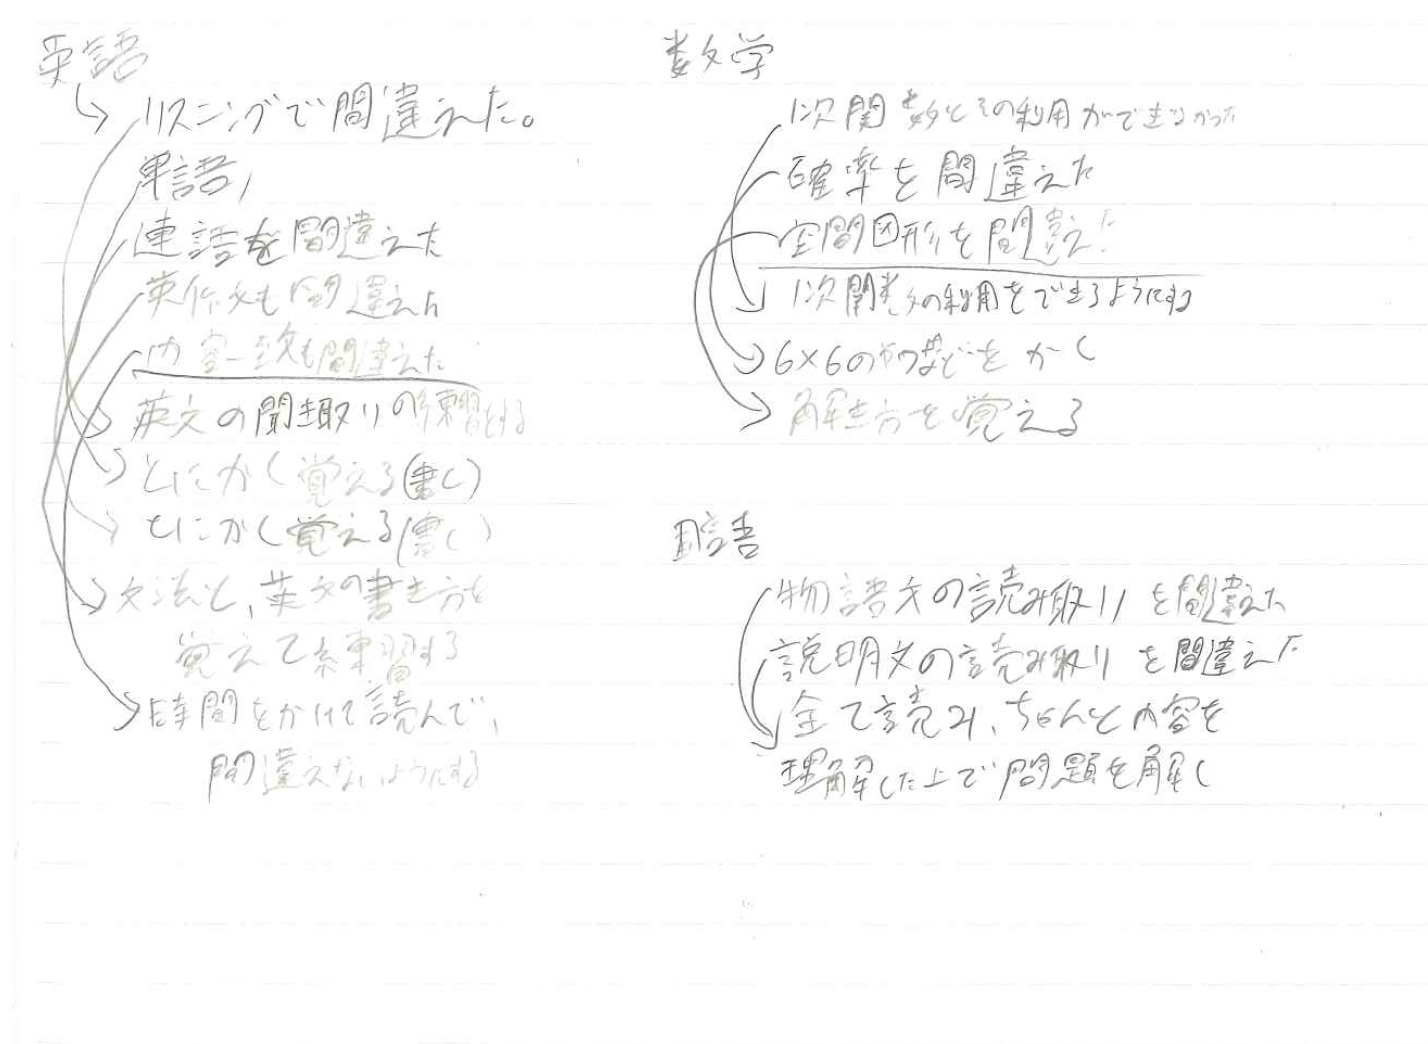 英語
リスニングで間違えた。
単語,
連語を間違えた
英作文も間違えた
内容一致も間違えた
英文の聞き取りの練習をする
とにかく覚える(書く)
とにかく覚える(書く)
文法と、英文の書き方を
覚えて練習する
時間をかけて読んで、
間違えないようにする
数学
1次関数とその利用ができなかった
確率を間違えた
空間図形を間違えた
1次関数の利用をできるようにする
6×6のやつなどをかく
解き方を覚える
国語
物語文の読み取りを間違えた
説明文の読み取りを間違えた
全て読み、ちゃんと内容を
理解した上で問題を解く